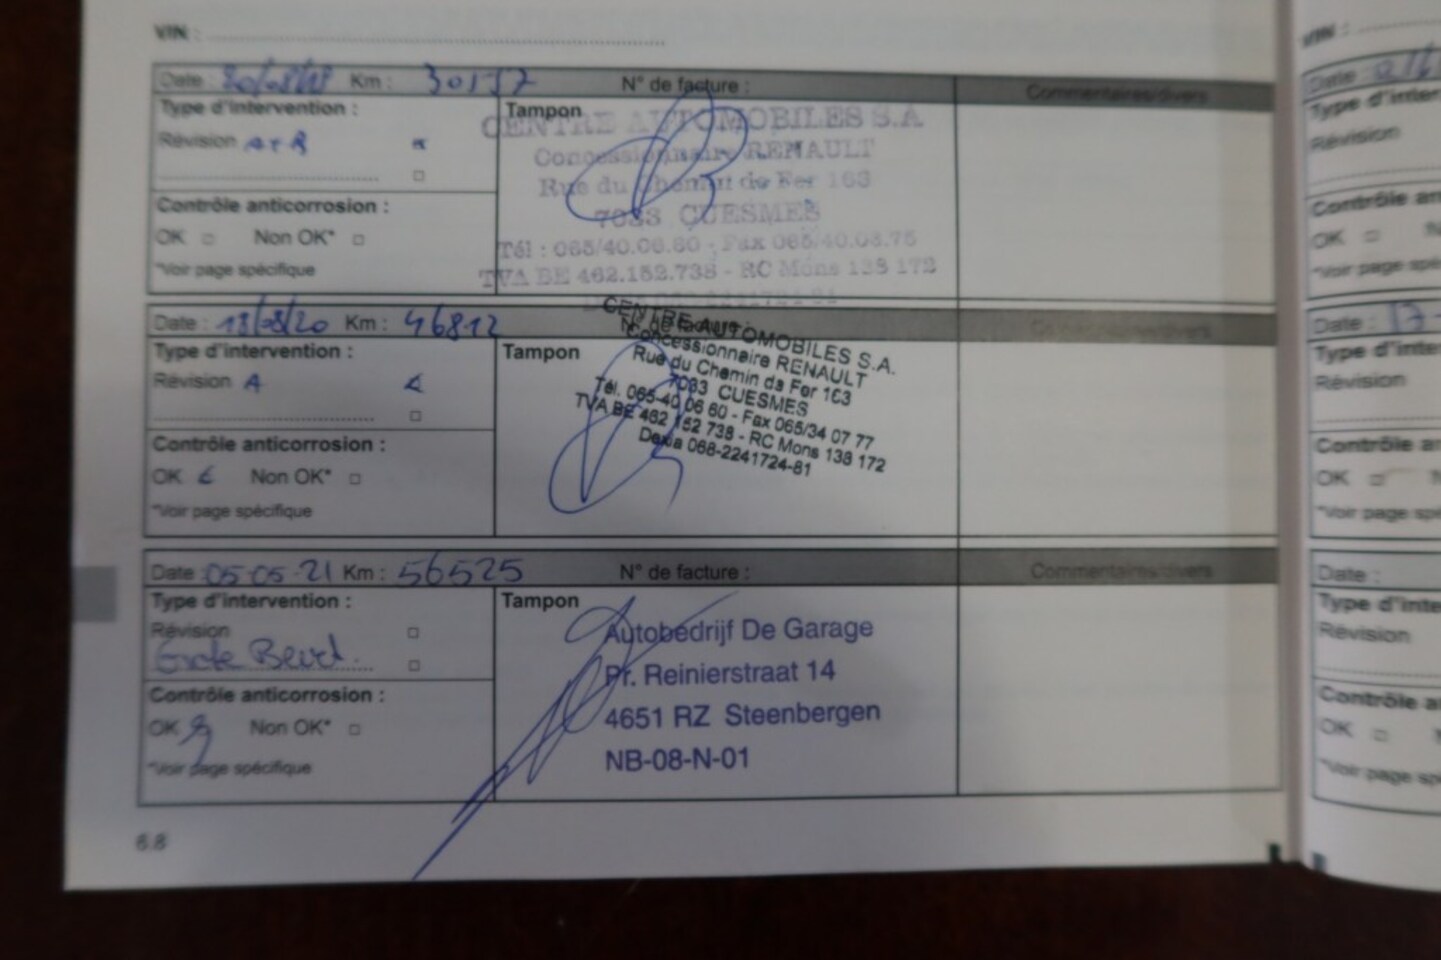 VIN :
Date : 30/08/18 Km : 30157 N° de facture : Commentaires/divers
Type d'intervention :
Révision A+B
Contrôle anticorrosion :
OK Non OK*
*Voir page spécifique
Tampon
CENTRE AUTOMOBILES S.A
Concessionnaire RENAULT
Rue du Chemin de Fer 163
7033 CUESMES
Tél : 065/40.06.60 - Fax 065/40.06.75
TVA BE 462.152.738 - RC Mons 138 172
Date : 18/08/20 Km : 46812 N° de facture : Commentaires/divers
Type d'intervention :
Révision A
Contrôle anticorrosion :
OK Non OK*
*Voir page spécifique
Tampon
CENTRE AUTOMOBILES S.A.
Concessionnaire RENAULT
Rue du Chemin de Fer 163
7033 CUESMES
Tél. 065-40 06 60 - Fax 065/34 07 77
TVA BE 462 152 738 - RC Mons 138 172
Dexia 068-2241724-81
Date : 05-05-21 Km : 56525 N° de facture : Commentaires/divers
Type d'intervention :
Révision
Grote Beurt.
Contrôle anticorrosion :
OK Non OK*
*Voir page spécifique
Tampon
Autobedrijf De Garage
Pr. Reinierstraat 14
4651 RZ Steenbergen
NB-08-N-01
6.8
VIN :
Date :
Révision
OK
*Voir page
Date : 17-
Révision
OK
*Voir page
Date :
Révision
OK
*Voir page